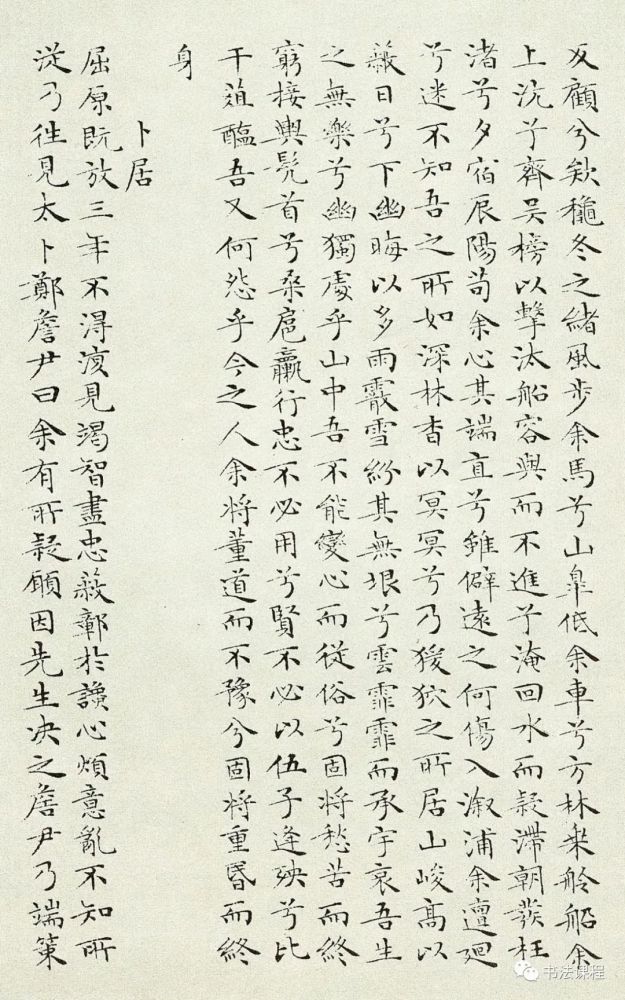 反顧兮欸穐冬之緒風步余馬兮山皐低余車兮方林乗舲船余
上沅兮齊吴榜以擊汰船容與而不進兮淹回水而疑滯朝發枉
渚兮夕宿辰陽苟余心其端直兮雖僻遠之何傷入溆浦余邅廻
兮迷不知吾之所如深林杳以冥冥兮乃猨狖之所居山峻高以
蔽日兮下幽晦以多雨霰雪紛其無垠兮雲霏霏而承宇哀吾生
之無樂兮幽獨處乎山中吾不能變心而從俗兮固將愁苦而終
窮接輿髠首兮桑扈臝行忠不必用兮賢不必以伍子逢殃兮比
干葅醢吾又何怨乎今之人余將董道而不豫兮固將重昏而終
身
卜居
屈原既放三年不得復見竭智盡忠蔽鄣於讒心煩意亂不知所
從乃往見太卜鄭詹尹曰余有所疑願因先生决之詹尹乃端策
书法课程